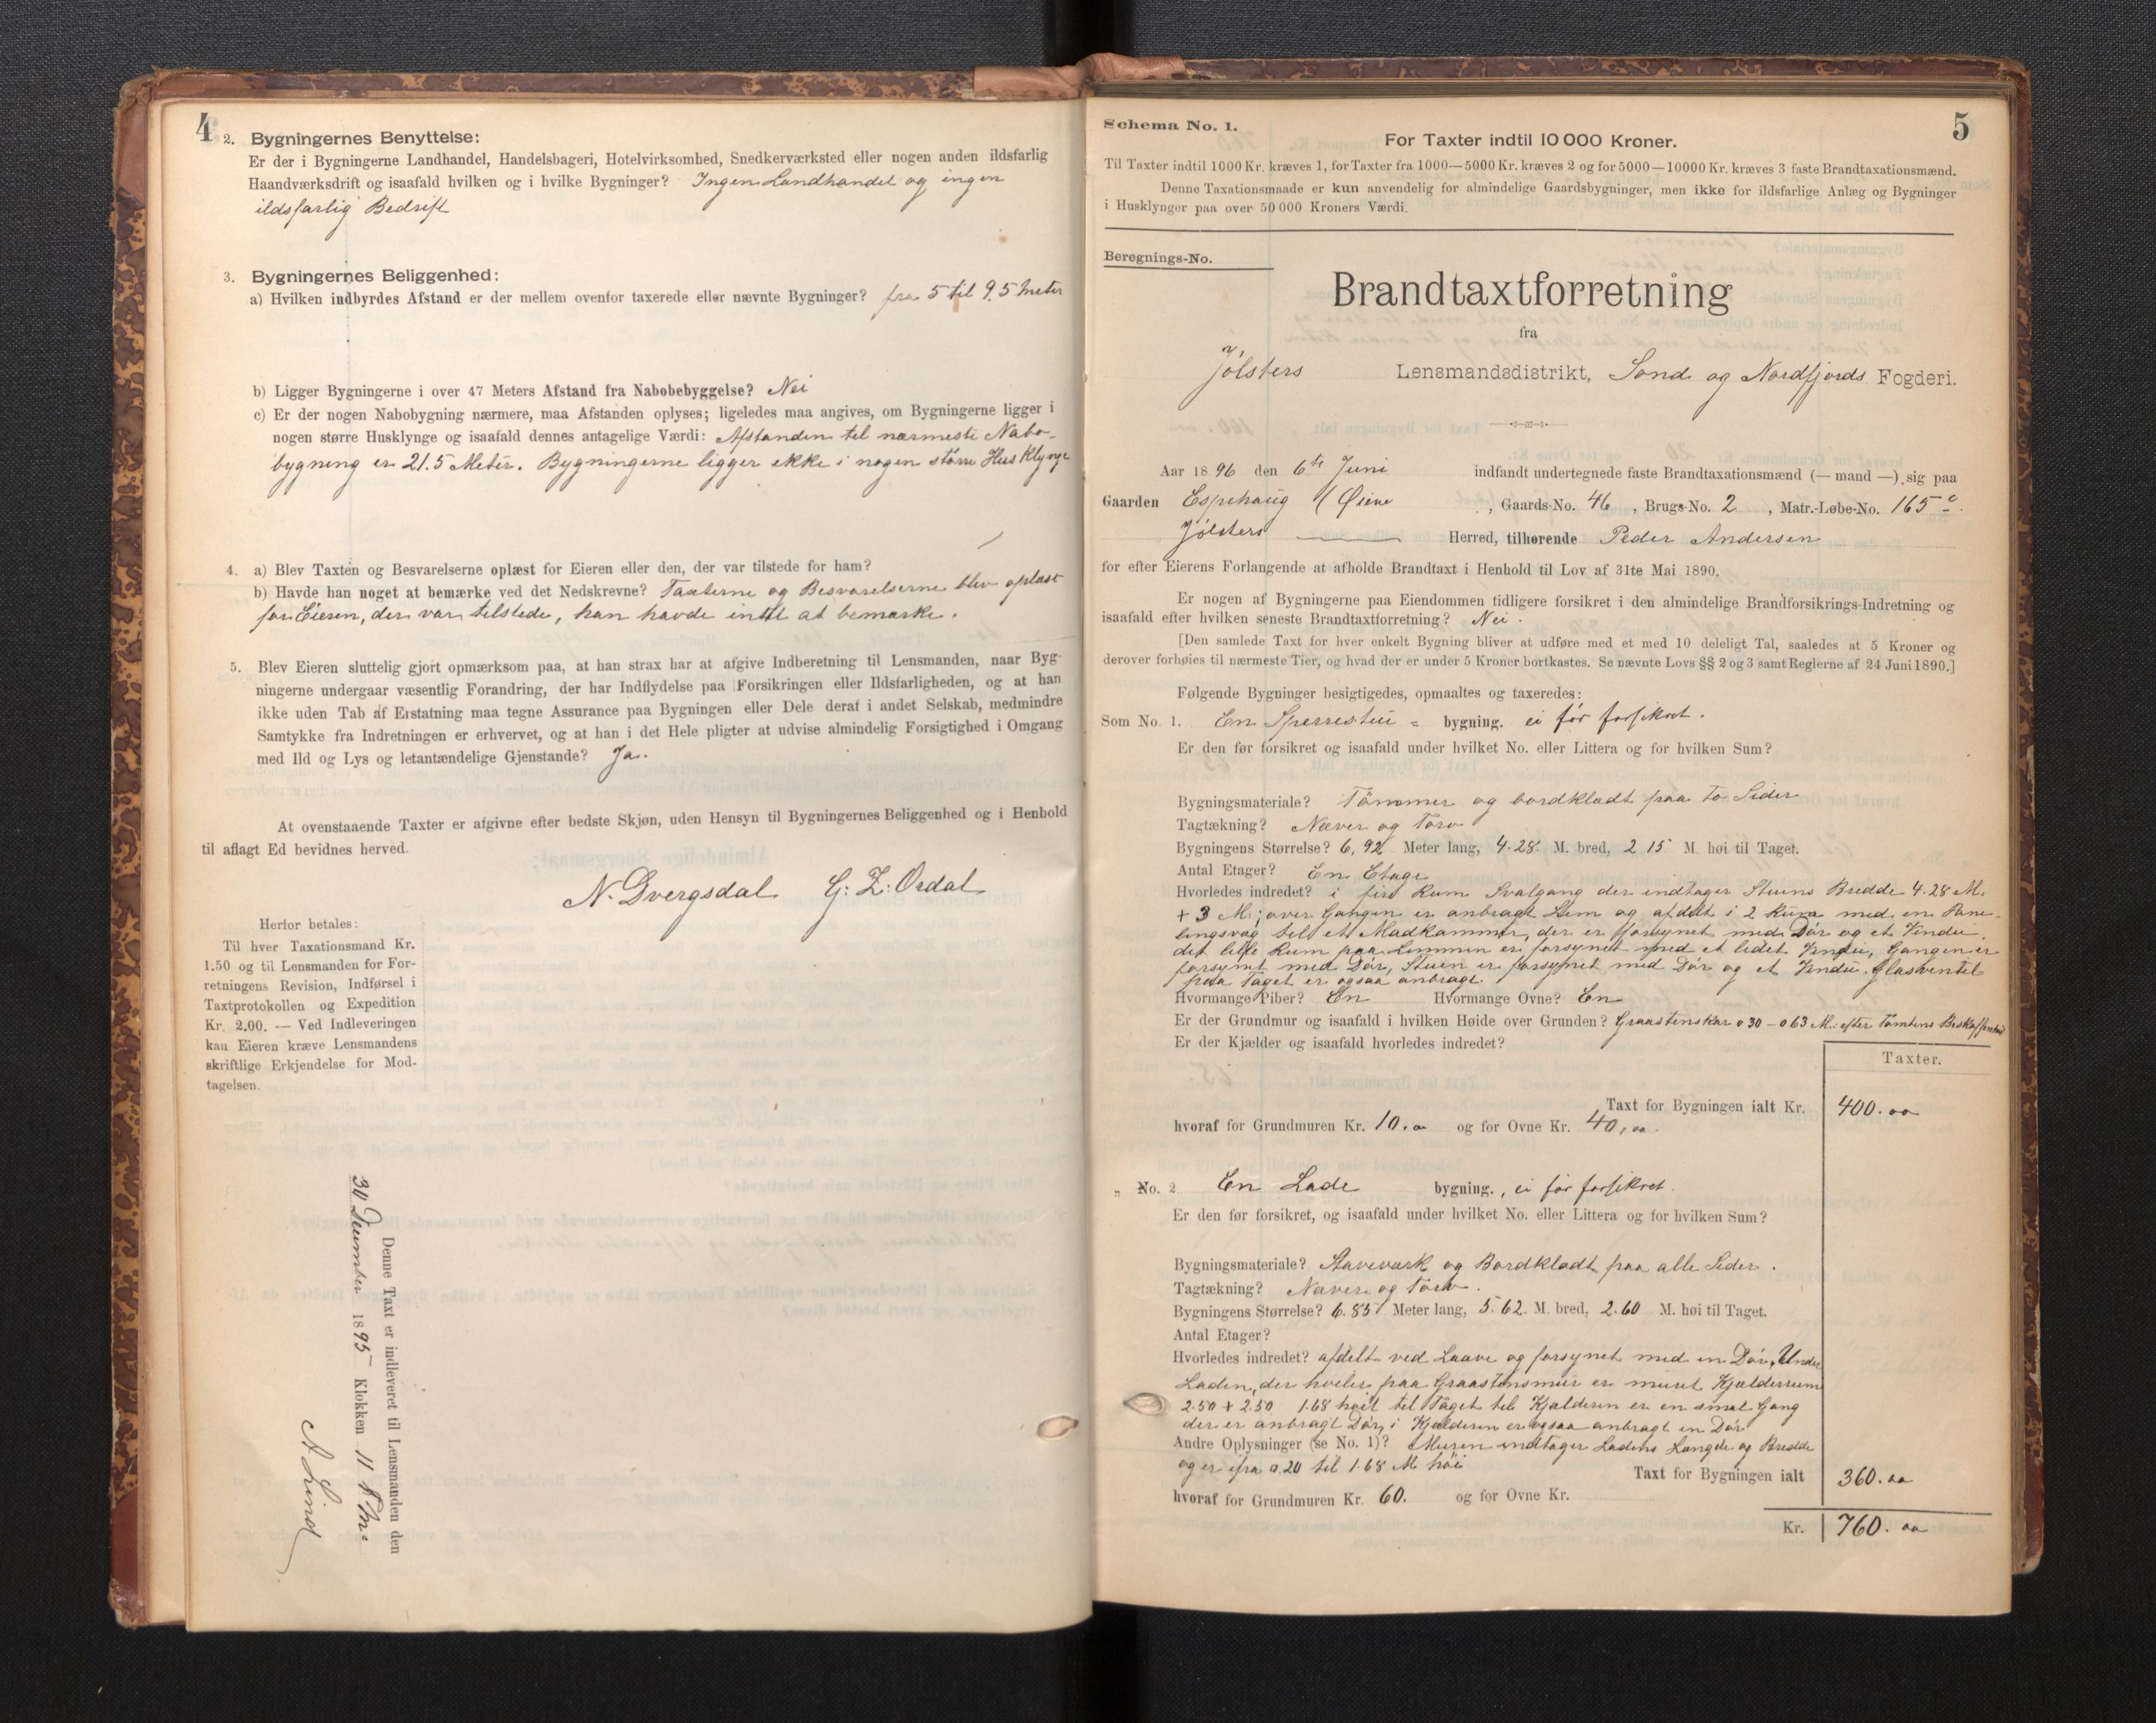 4
2. Bygningernes Benyttelse:
Er der i Bygningerne Landhandel, Handelsbageri, Hotelvirksomhed, Snedkerværksted eller nogen anden ildsfarlig
Haandværksdrift og isaafald hvilken og i hvilke Bygninger? Ingen Landhandel og ingen
ildsfarlig Bedrift
3. Bygningernes Beliggenhed:
a) Hvilken indbyrdes Afstand er der mellem ovenfor taxerede eller nævnte Bygninger? fra 5 til 9.5 Meter
b) Ligger Bygningerne i over 47 Meters Afstand fra Nabobebyggelse? Nei
c) Er der nogen Nabobygning nærmere, maa Afstanden oplyses; ligeledes maa angives, om Bygningerne ligger i
nogen større Husklynge og isaafald dennes antagelige Værdi: Afstanden til nærmeste Nabo-
bygning er 21.5 Meter. Bygningerne ligger ikke i nogen større Husklynge
4. a) Blev Taxten og Besvarelserne oplæst for Eieren eller den, der var tilstede for ham?
b) Havde han noget at bemærke ved det Nedskrevne? Taxterne og Besvarelserne blev oplæst
for Eieren, der var tilstede, han havde intet at bemærke.
5. Blev Eieren sluttelig gjort opmærksom paa, at han strax har at afgive Indberetning til Lensmanden, naar Byg-
ningerne undergaar væsentlig Forandring, der har Indflydelse paa Forsikringen eller Ildsfarligheden, og at han
ikke uden Tab af Erstatning maa tegne Assurance paa Bygningen eller Dele deraf i andet Selskab, medmindre
Samtykke fra Indretningen er erhvervet, og at han i det Hele pligter at udvise almindelig Forsigtighed i Omgang
med Ild og Lys og letantændelige Gjenstande? Ja.
At ovenstaaende Taxter er afgivne efter bedste Skjøn, uden Hensyn til Bygningernes Beliggenhed og i Henhold
til aflagt Ed bevidnes herved.
N. Dvergsdal G: Z: Ordal
Herfor betales:
Til hver Taxationsmand Kr.
1.50 og til Lensmanden for For-
retningens Revision, Indførsel i
Taxtprotokollen og Expedition
Kr. 2.00. — Ved Indleveringen
kan Eieren kræve Lensmandens
skriftlige Erkjendelse for Mod-
tagelsen.
Denne Taxt er indleveret til Lensmanden den
30 Desember 1895 Klokken 11 Fm.
A Lind
5
Schema No. 1.
For Taxter indtil 10 000 Kroner.
Til Taxter indtil 1000 Kr. kræves 1, for Taxter fra 1000—5000 Kr. kræves 2 og for 5000—10000 Kr. kræves 3 faste Brandtaxationsmænd.
Denne Taxationsmaade er kun anvendelig for almindelige Gaardsbygninger, men ikke for ildsfarlige Anlæg og Bygninger
i Husklynger paa over 50 000 Kroners Værdi.
Beregnings-No.
Brandtaxtforretning
fra
Jølsters Lensmandsdistrikt, Sønd og Nordfjords Fogderi.
Aar 1896 den 6te Juni indfandt undertegnede faste Brandtaxationsmænd (— mand —) sig paa
Gaarden Espehaug / Øiene, Gaards-No. 46, Brugs-No. 2, Matr.-Løbe-No. 165 c.
Jølsters Herred, tilhørende Peder Andersen
for efter Eierens Forlangende at afholde Brandtaxt i Henhold til Lov af 31te Mai 1890.
Er nogen af Bygningerne paa Eiendommen tidligere forsikret i den almindelige Brandforsikrings-Indretning og
isaafald efter hvilken seneste Brandtaxtforretning? Nei.
[Den samlede Taxt for hver enkelt Bygning bliver at udføre med et med 10 deleligt Tal, saaledes at 5 Kroner og
derover forhøies til nærmeste Tier, og hvad der er under 5 Kroner bortkastes. Se nævnte Lovs §§ 2 og 3 samt Reglerne af 24 Juni 1890.]
Følgende Bygninger besigtigedes, opmaaltes og taxeredes:
Som No. 1. En Sperrestue = bygning. ei før forsikret.
Er den før forsikret og isaafald under hvilket No. eller Littera og for hvilken Sum?
Bygningsmateriale? Tømmer og bordklædt paa to Sider
Tagtækning? Næver og Torv
Bygningens Størrelse? 6,92 Meter lang, 4.28 M. bred, 2 15 M. høi til Taget.
Antal Etager? En Etage
Hvorledes indredet? i fire Rum Svalgang der indtager Stuens Bredde 4.28 M.
+ 3 M; over Gangen er anbragt Lem og afdelt i 2 Rum med en Pane-
lingsvæg til et Madkammer, der er forsynet med Dør og et Vindu
det lille Rum paa Lemmen er forsynet med et lidet Vindu, Gangen er
forsynet med Dør, Stuen er forsynet med Dør og et Vindu. Glasventil
paa Taget er ogsaa anbragt.
Hvormange Piber? En Hvormange Ovne? En
Er der Grundmur og isaafald i hvilken Høide over Grunden? Graastenskar 0 30 – 0 63 M. efter Tomtens Beskaffenhed
Er der Kjælder og isaafald hvorledes indredet?
Taxter.
Taxt for Bygningen ialt Kr. 400. 00
hvoraf for Grundmuren Kr. 10.00 og for Ovne Kr. 40,00.
„ No. 2 En Lade bygning., ei før forsikret.
Er den før forsikret, og isaafald under hvilket No. eller Littera og for hvilken Sum?
Bygningsmateriale? Staveværk og Bordklædt paa alle Sider.
Tagtækning? Næver og Torv.
Bygningens Størrelse? 6.85 Meter lang, 5.62. M. bred, 2.60 M. høi til Taget.
Antal Etager?
Hvorledes indredet? afdelt ved Laave og forsynet med en Dør. Under
Laden, der hviler paa Graastensmur er muret Kjælderrum
2.50 + 2.50 1.68 høit til Taget til Kjælderen er en smal Gang
der er anbragt Dør, i Kjælderen er ogsaa anbragt en Dør
Andre Oplysninger (se No. 1)? Muren indtager Ladens Længde og Bredde
og er fra 0.20 til 1.68 M høi
Taxt for Bygningen ialt 360. 00
hvoraf for Grundmuren Kr. 60. og for Ovne Kr.
Kr. 760. 00